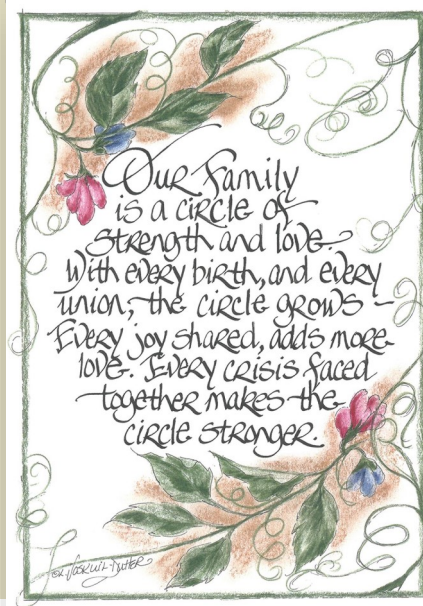 Our Family
is a circle of
strength and love.
With every birth, and every
union, the circle grows -
Every joy shared, adds more
love. Every crisis faced
together makes the
circle stronger.